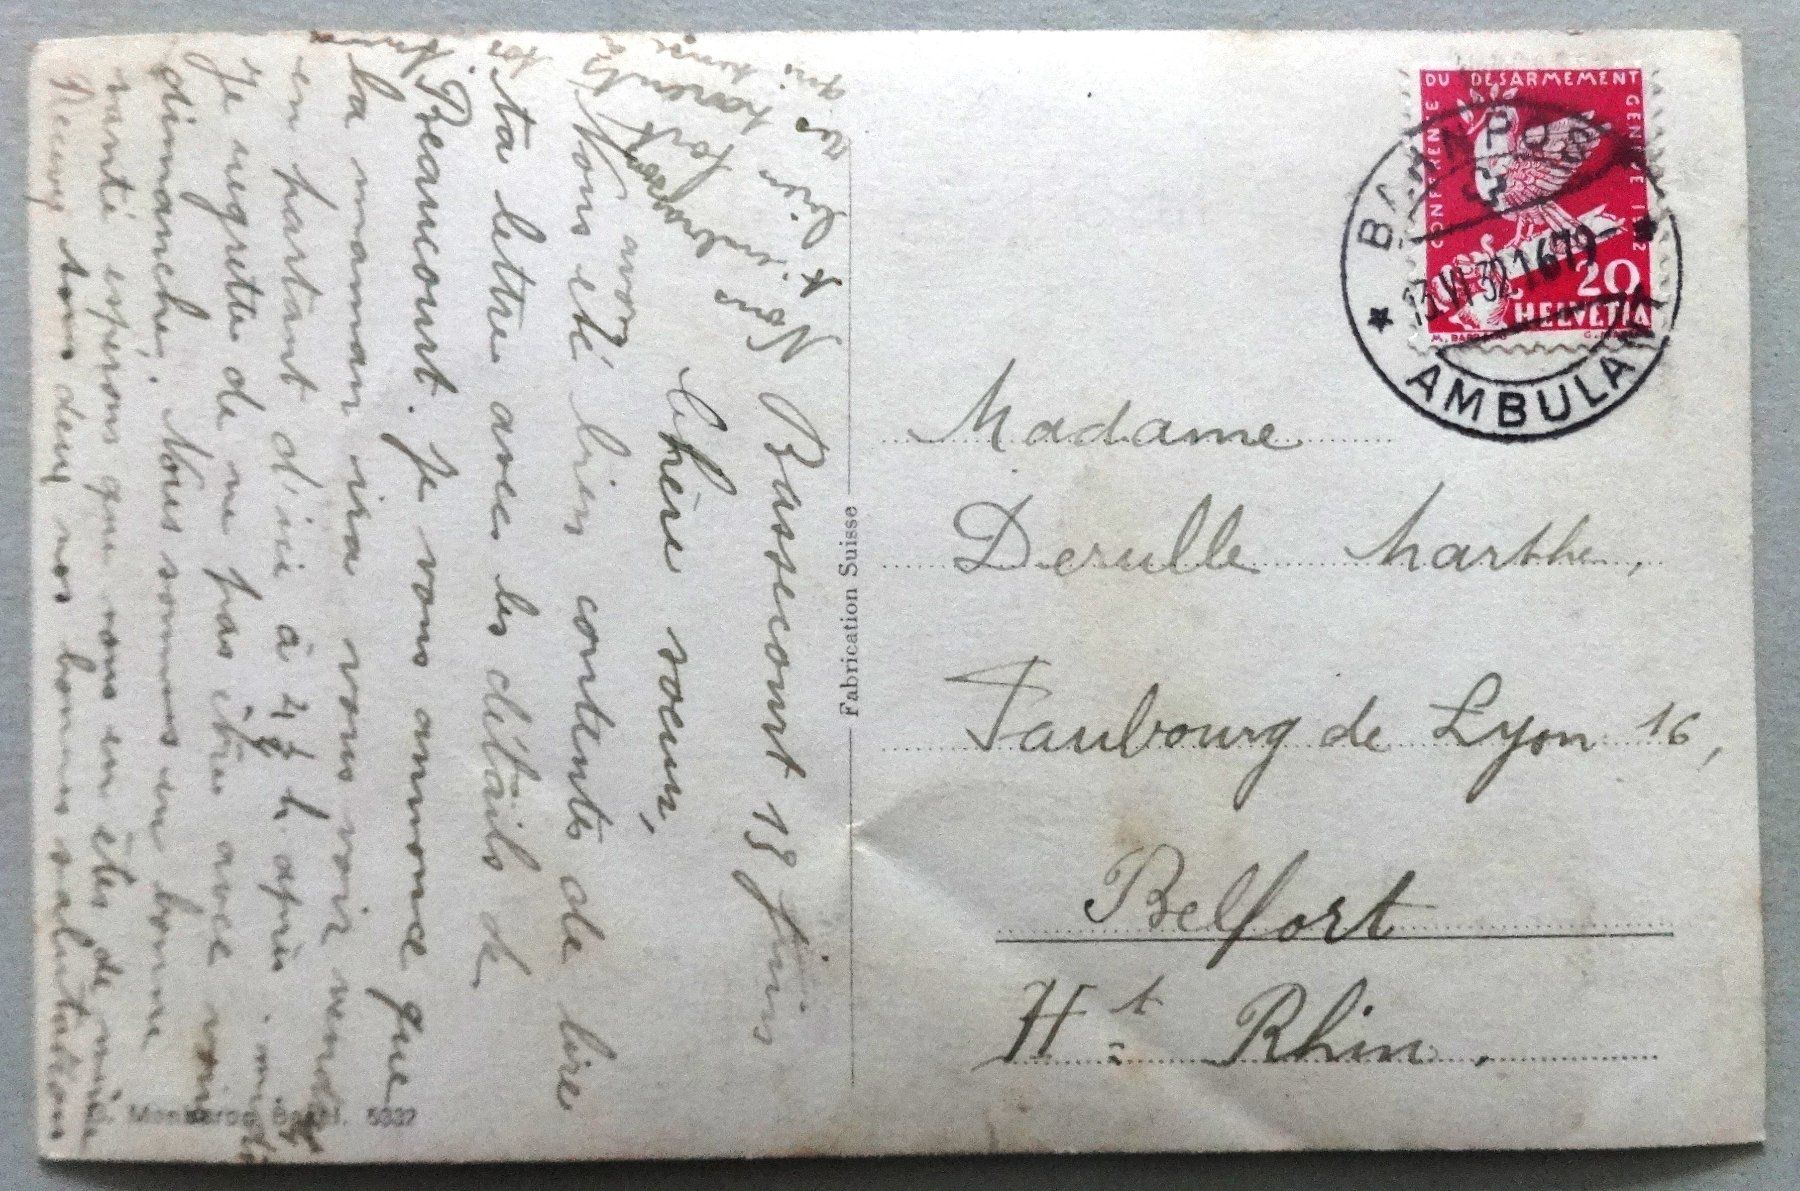 Bassecourt 13 juin
Chère soeur,
Nous avons
été bien contents de lire
ta lettre avec les détails de
Beaucourt. Je vous annonce que
la maman ira vous voir vendredi
en partant d'ici à 4 ½ h. après-midi
Je regrette de ne pas être avec vous
dimanche. Nous sommes en bonne
santé espérons que vous en êtes de même
Recevez tous deux nos bonnes salutations
Nous
embrassons
bien fort
les parents
CONFERENCE DU DESARMEMENT GENEVE 1932
20
HELVETIA
BAHNPOST
13.VI.32.1679
* AMBULANT *
Madame
Derulle Marthe,
Faubourg de Lyon 16,
Belfort
Ht Rhin.
Fabrication Suisse
5332